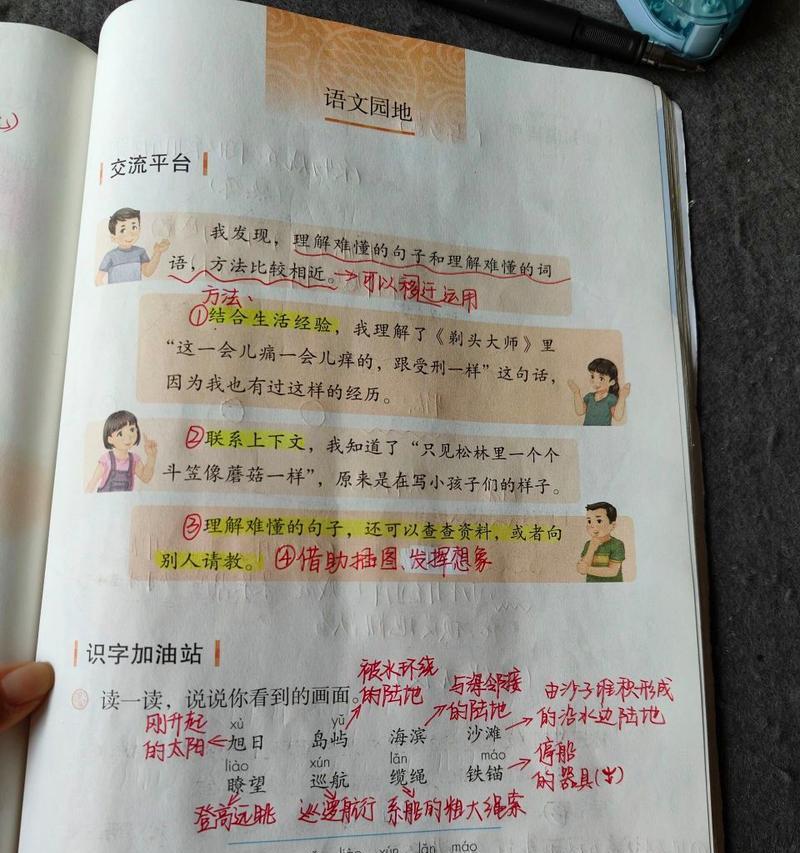 语文园地
交流平台
我发现，理解难懂的句子和理解难懂的词
语，方法比较相近。→可以移迁运用
方法、
①结合生活经验，我理解了《剃头大师》里
“这一会儿痛一会儿痒的，跟受刑一样”这句话，
因为我也有过这样的经历。
②联系上下文，我知道了“只见松林里一个个
斗笠像蘑菇一样”，原来是在写小孩子们的样子。
③理解难懂的句子，还可以查查资料，或者向
别人请教。④借助插图、发挥想象
识字加油站
读一读，说说你看到的画面。
被水环绕
的陆地
与海邻接
的陆地
由沙子堆积形成
的沿水边陆地
刚升起
的太阳
xù yǔ
旭日 岛屿 海滨 沙滩
liào xún lǎn máo
瞭望 巡航 缆绳 铁锚
停船
的器具
登高远眺 巡逻航行 系船的粗大绳索
liào xún lǎn máo